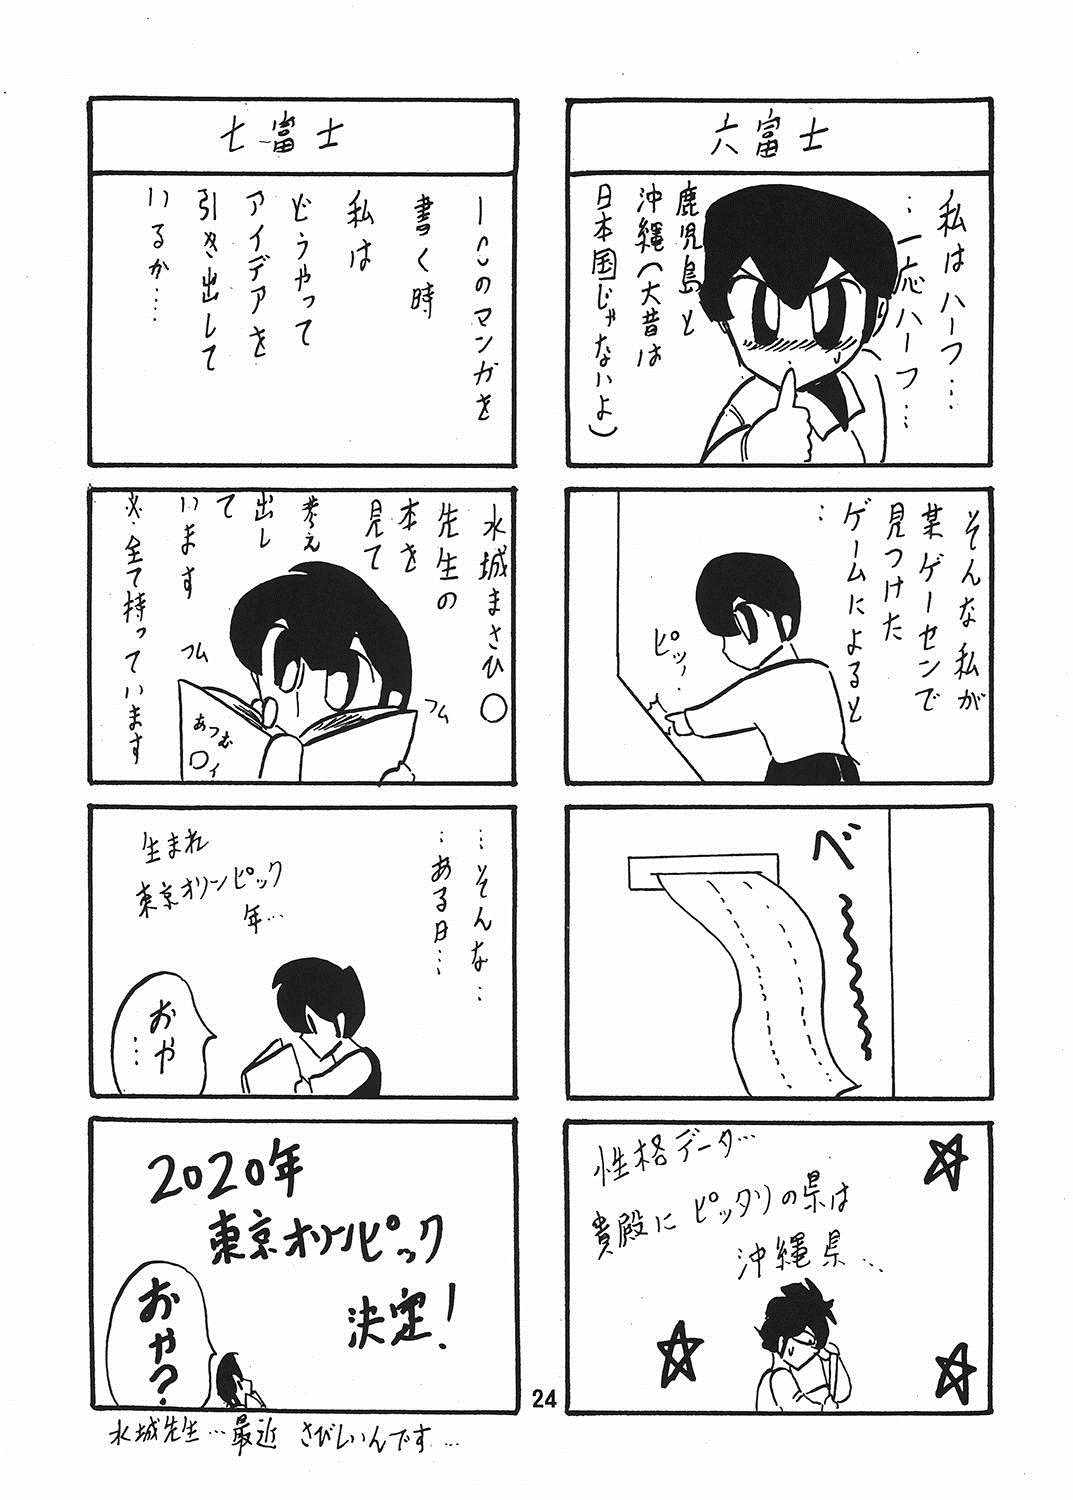 六富士
私はハーフ…
…一応ハーフ…
鹿児島と
沖縄(大昔は
日本国じゃないよ)
そんな私が
某ゲーセンで
見つけた
ゲームによると
…
ピッ
べ〜
性格データ…
貴殿にピッタリの県は
沖縄県…
七富士
のマンガを
書く時
私は
どうやって
アイデアを
引き出して
いるか…
水城まさひ〇
先生の
本を
見て
考え
出し
て
います
※全て持っています
フム
フム
あつむ
〇ィ
…そんな…
…ある日…
生まれ
東京オリンピック
年…
おや
…
2020年
東京オリンピック
決定!
おや?
水城先生…最近 さびしいんです…
24